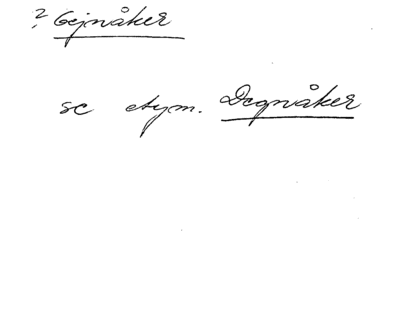 ? Gejnåker
se etym. Degnåker